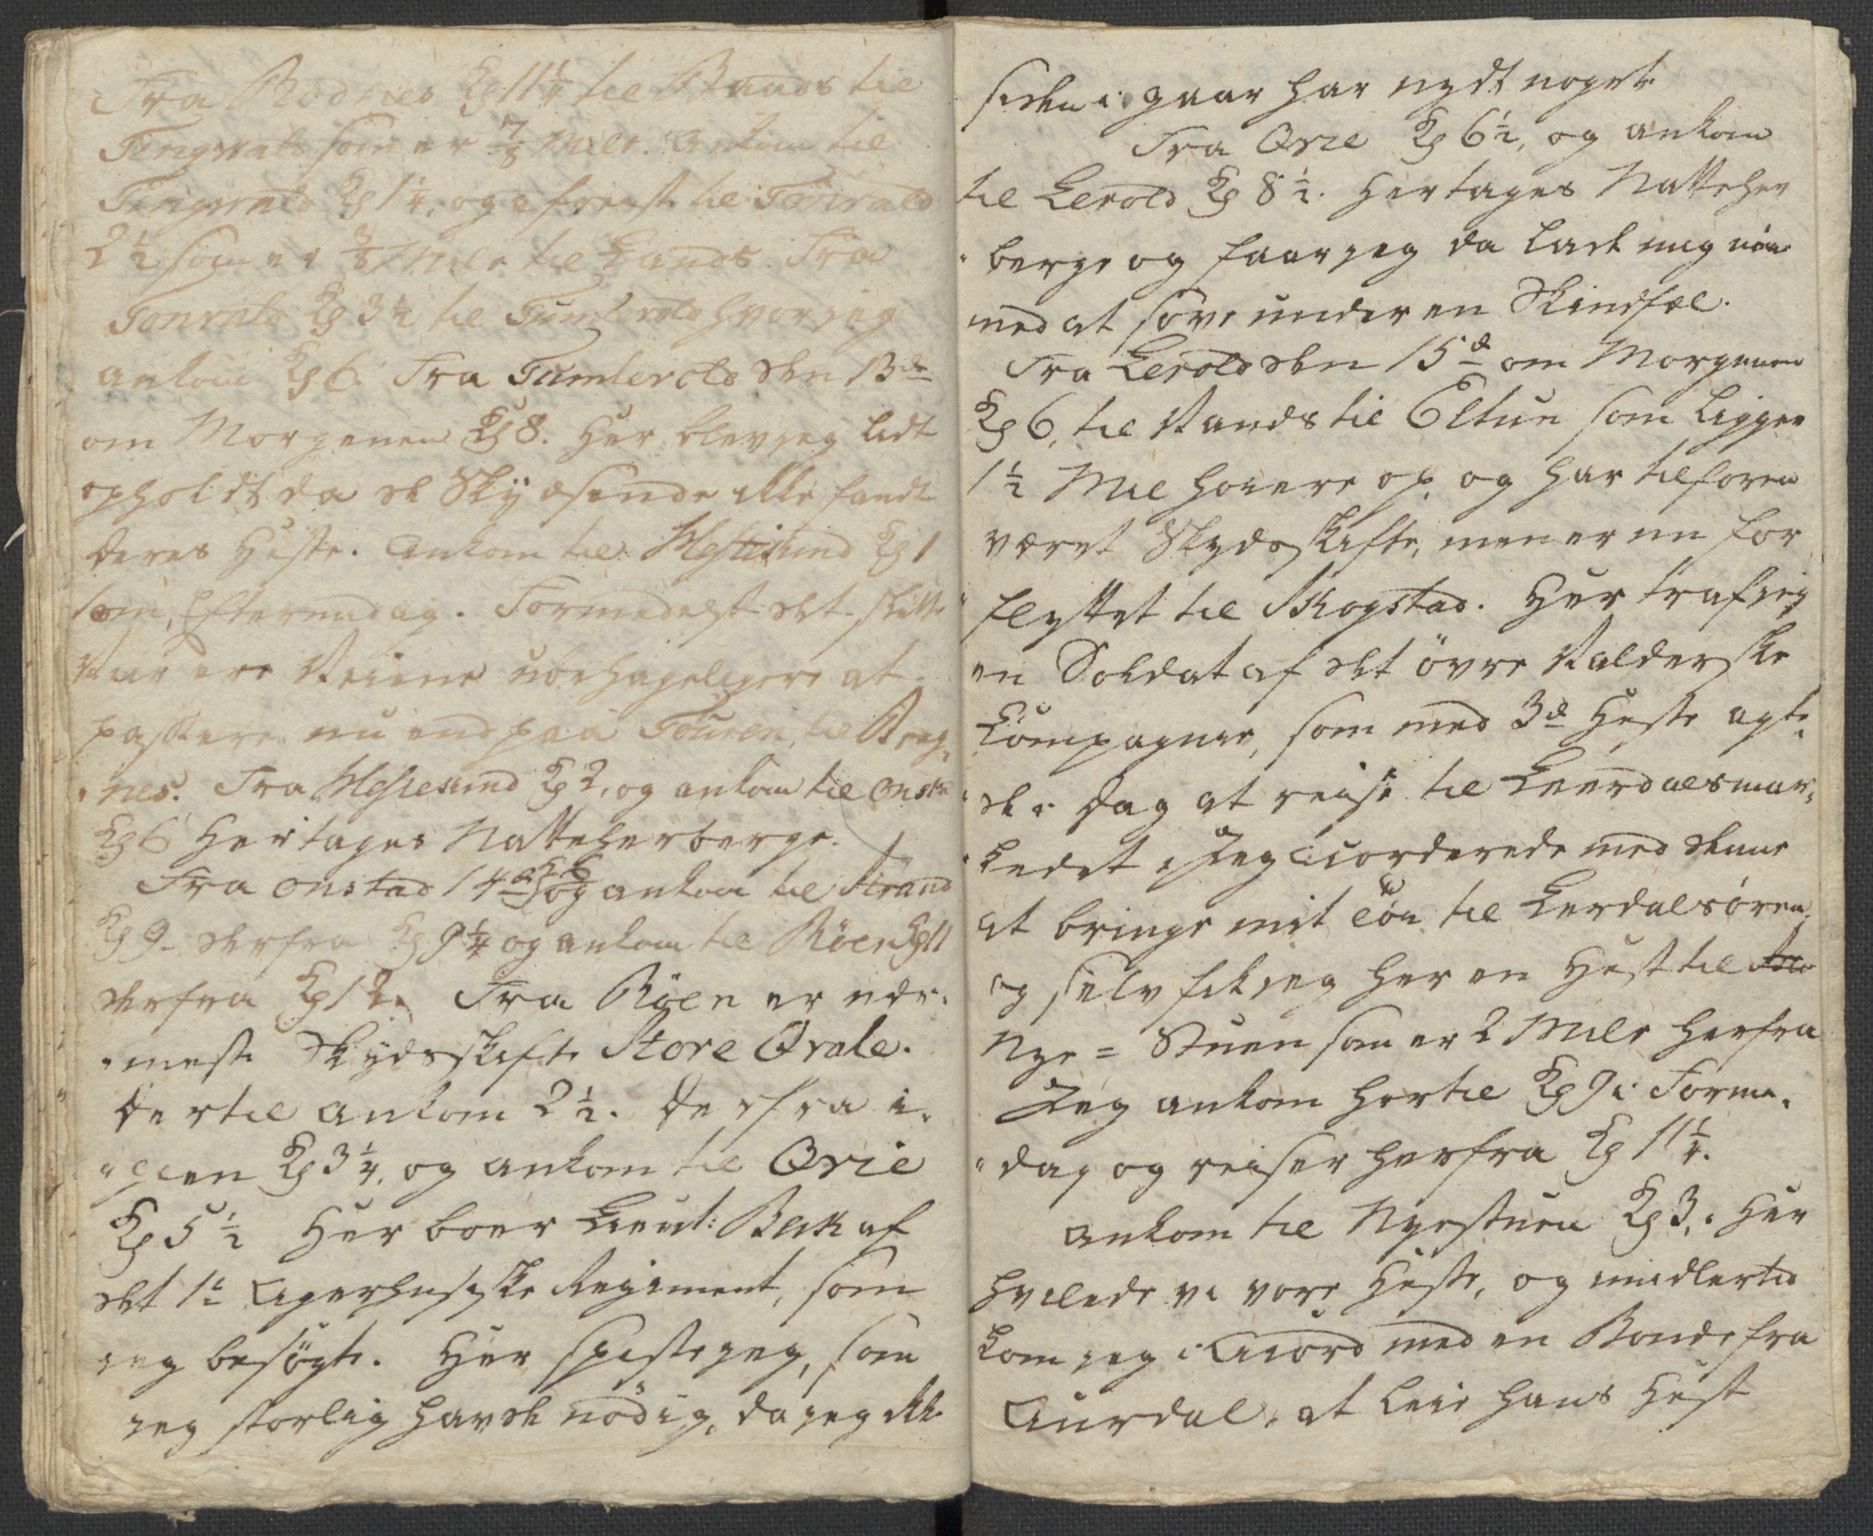 Fra Rodnes Kl 11 1/4 til Vands til
Tingvold som er 7/8 Mile. Ankom til
Tingvold Kl 1 1/4, og afreist til Tonvold
2 1/2 som er 3/8 Mile til Lands. Fra
Tonvold Kl 3 1/2 til Tumlevold hvor jeg
ankom Kl 6. Fra Tumlevold den 13de
om Morgenen Kl 8. Her blev jeg lidt
opholdt da de Skydsende ikke fandt
deres Heste. Ankom til Westesund Kl 1
Eftermidag. Formedelst det slette
ere Veiene ubehageligere at
passere nu end paa Touren til Brag¬
nes. Fra Westesund Kl 2, og ankom til
Kl 6 Her tages Natteherberge.
Fra Onstad 14de Kl 6 og ankom til Strand
Kl 9 derfra Kl 9 1/4 og ankom til Röen Kl 11
derfra Kl 12. Fra Röen er nær¬
meste Skydsskifte Store Qvale.
Dertil ankom 2 1/2. Derfra i¬
gien Kl 3 1/4, og ankom til Qvie
Kl 5 1/2 Her boer Lieut: af
det 1te Agerhusiske Regiment, som
jeg besögte. Her spiste jeg, som
jeg storlig havde nödig, da jeg ikke
siden i gaar har nydt noget
Fra Qvie Kl 6 1/2, og ankom
til Lerold Kl 8 1/2. Her tages Natteher
berge og faar jeg da ladt mig nöie
med at sove under en Skindfæl.
Fra Lerold den 15de om Morgenen
Kl 6, til Vands til Eltun som ligger
1 1/2 Mil hoiere op, og har tilforen
været Skydsskifte, men er nu for
flyttet til Skogstad. Her traf jeg
en Soldat af det övre Valderske
Compagnie, som med 3de Heste agte¬
de i Dag at reise til Leerdalsmar¬
kedet. Jeg accorderede med denne
at bringe mit Töi til Lerdalsøren,
og selv fik jeg her en Hest til
Nye = Stuen som er 2 Mile herfra
Jeg ankom hertil Kl 9 i Forme¬
dag og reiser herfra Kl 11 1/4.
Ankom til Nyestuen Kl 3. Her
hvilede vi vore Heste, og imidlertid
kom jeg i Accord med en Bonde fra
Aurdal, at leie hans Hest